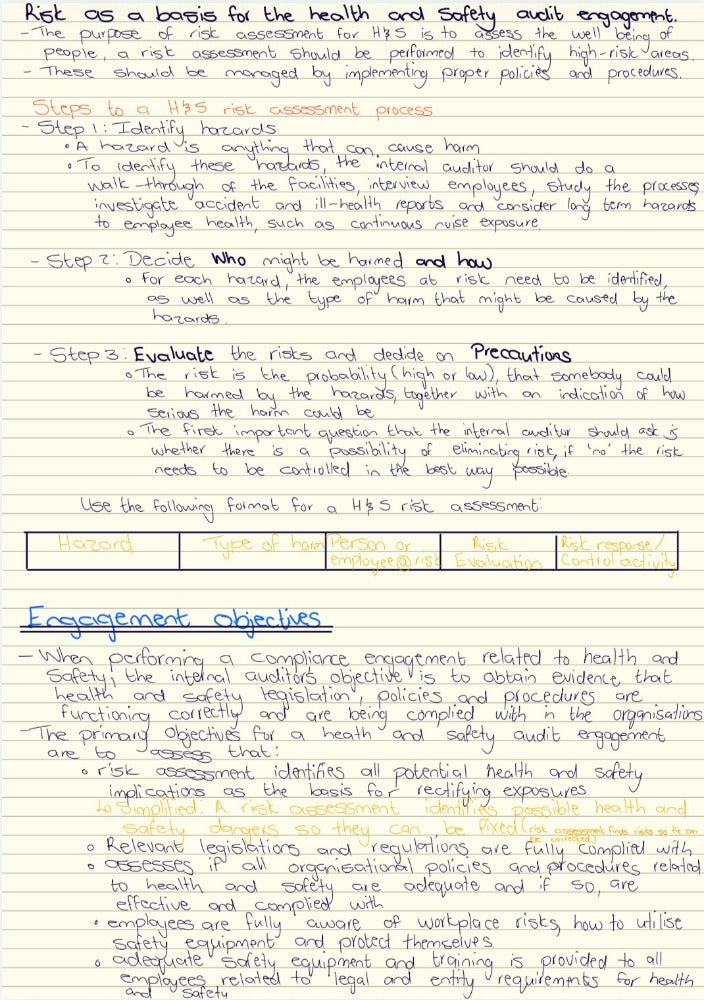 Risk as a basis for the health and Safety audit engagement.
- The purpose of risk assessment for H&S is to assess the well being of
people, a risk assessment should be performed to identify high-risk areas.
- These should be managed by implementing proper policies and procedures.
Steps to a H&S risk assessment process
- Step 1: Identify hazards
• A hazard is anything that can cause harm
• To identify these hazards, the internal auditor should do a
walk-through of the facilities, interview employees, study the processes
investigate accident and ill-health reports and consider long term hazards
to employee health, such as continuous noise exposure.
- Step 2: Decide Who might be harmed and how
• For each hazard, the employees at risk need to be identified,
as well as the type of harm that might be caused by the
hazards.
- Step 3: Evaluate the risks and dedide on Precautions
• The risk is the probability (high or low), that somebody could
be harmed by the hazards, together with an indication of how
serious the harm could be
• The first important question that the internal auditor should ask is
whether there is a possibility of eliminating risk, if 'no' the risk
needs to be controlled in the best way possible.
Use the following format for a H&S risk assessment:
Hazard | Type of harm | Person or employee @ risk | Risk Evaluation | Risk response/ Control activity
Engagement objectives
- When performing a compliance engagement related to health and
Safety, the internal auditors objective is to obtain evidence that
health and safety legislation, policies and procedures are
functioning correctly and are being complied with in the organisations
- The primary objectives for a heath and safety audit engagement
are to assess that:
• risk assessment identifies all potential health and safety
implications as the basis for rectifying exposures
↳ Simplified: A risk assessment identifies possible health and
safety dangers so they can be fixed (risk assessment finds risks so the can
be corrected)
• Relevant legislations and regulations are fully complied with
• assesses if all organisational policies and procedures related
to health and safety are adequate and if so, are
effective and complied with
• employees are fully aware of workplace risks, how to utilise
safety equipment and protect themselves
• adequate safety equipment and training is provided to all
employees related to legal and entity requirements for health
and safety